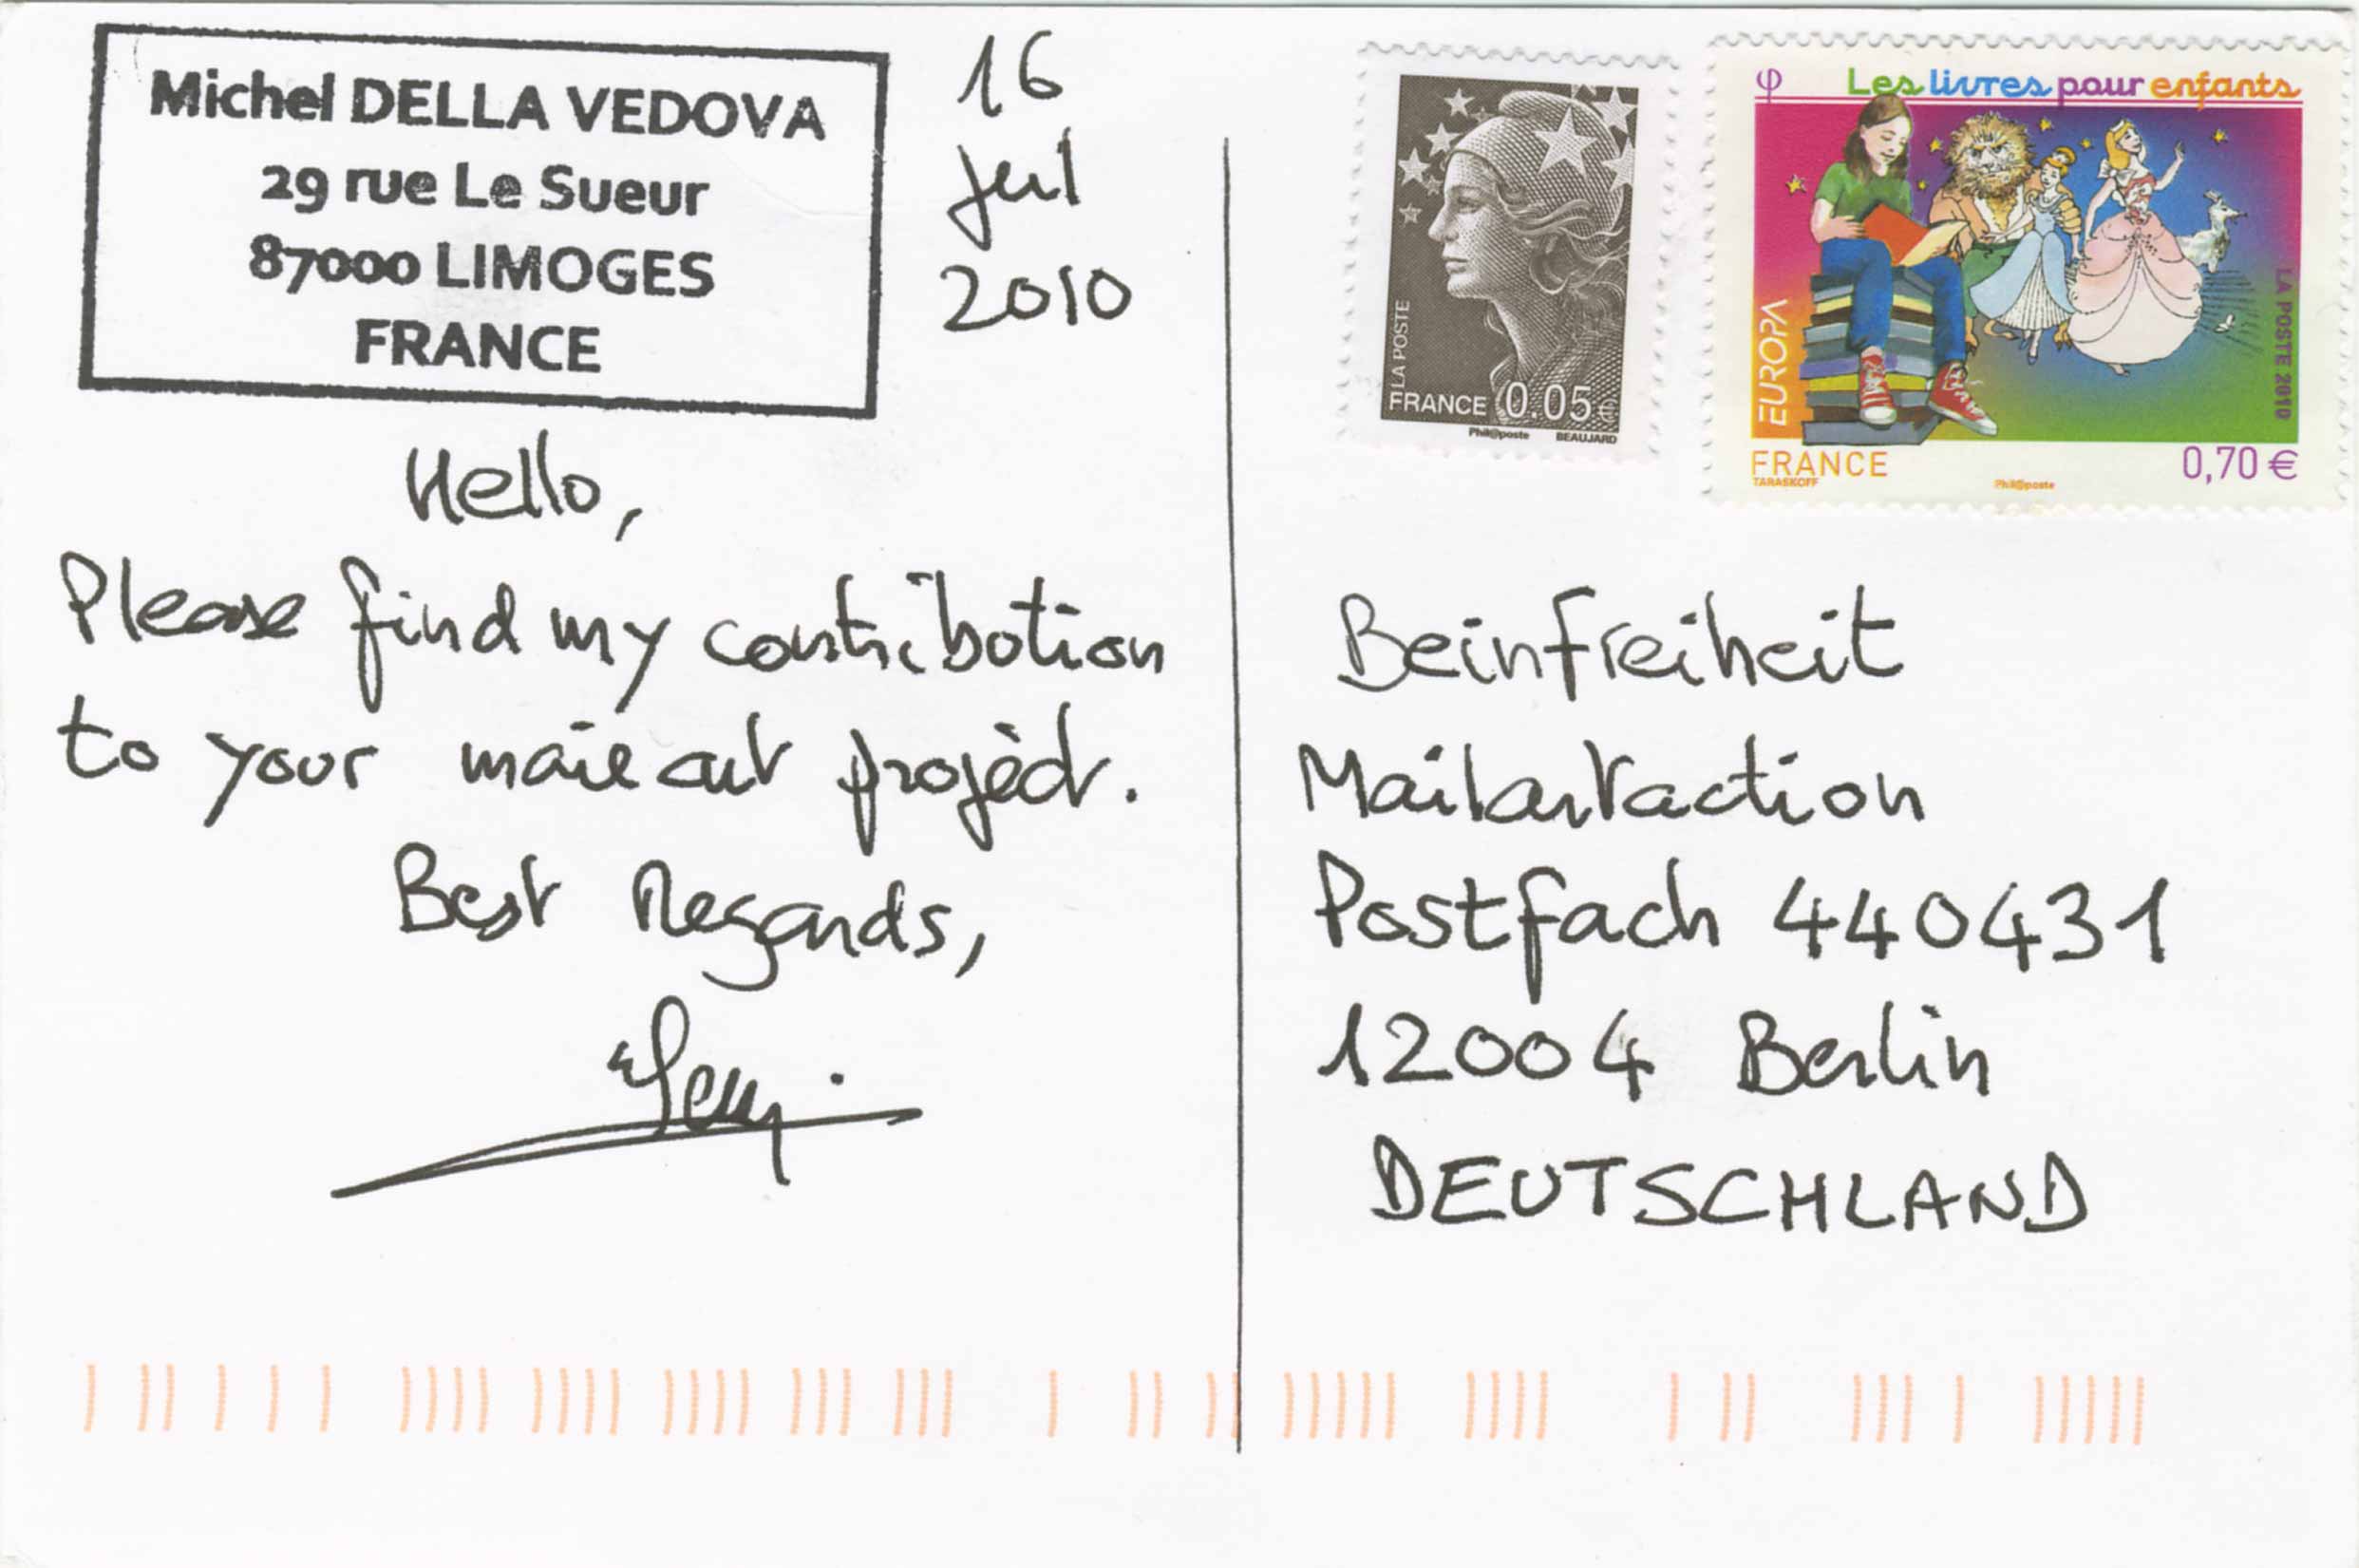 Michel DELLA VEDOVA
29 rue Le Sueur
87000 LIMOGES
FRANCE
16
Jul
2010
Hello,
Please find my contribution
to your mail art projèct.
Best Regards,
LA POSTE
FRANCE 0.05 €
Phil@poste BEAUJARD
φ Les livres pour enfants
EUROPA
LA POSTE 2010
FRANCE 0,70 €
TARASKOFF Phil@poste
Beinfreiheit
Mailartaction
Postfach 440431
12004 Berlin
DEUTSCHLAND